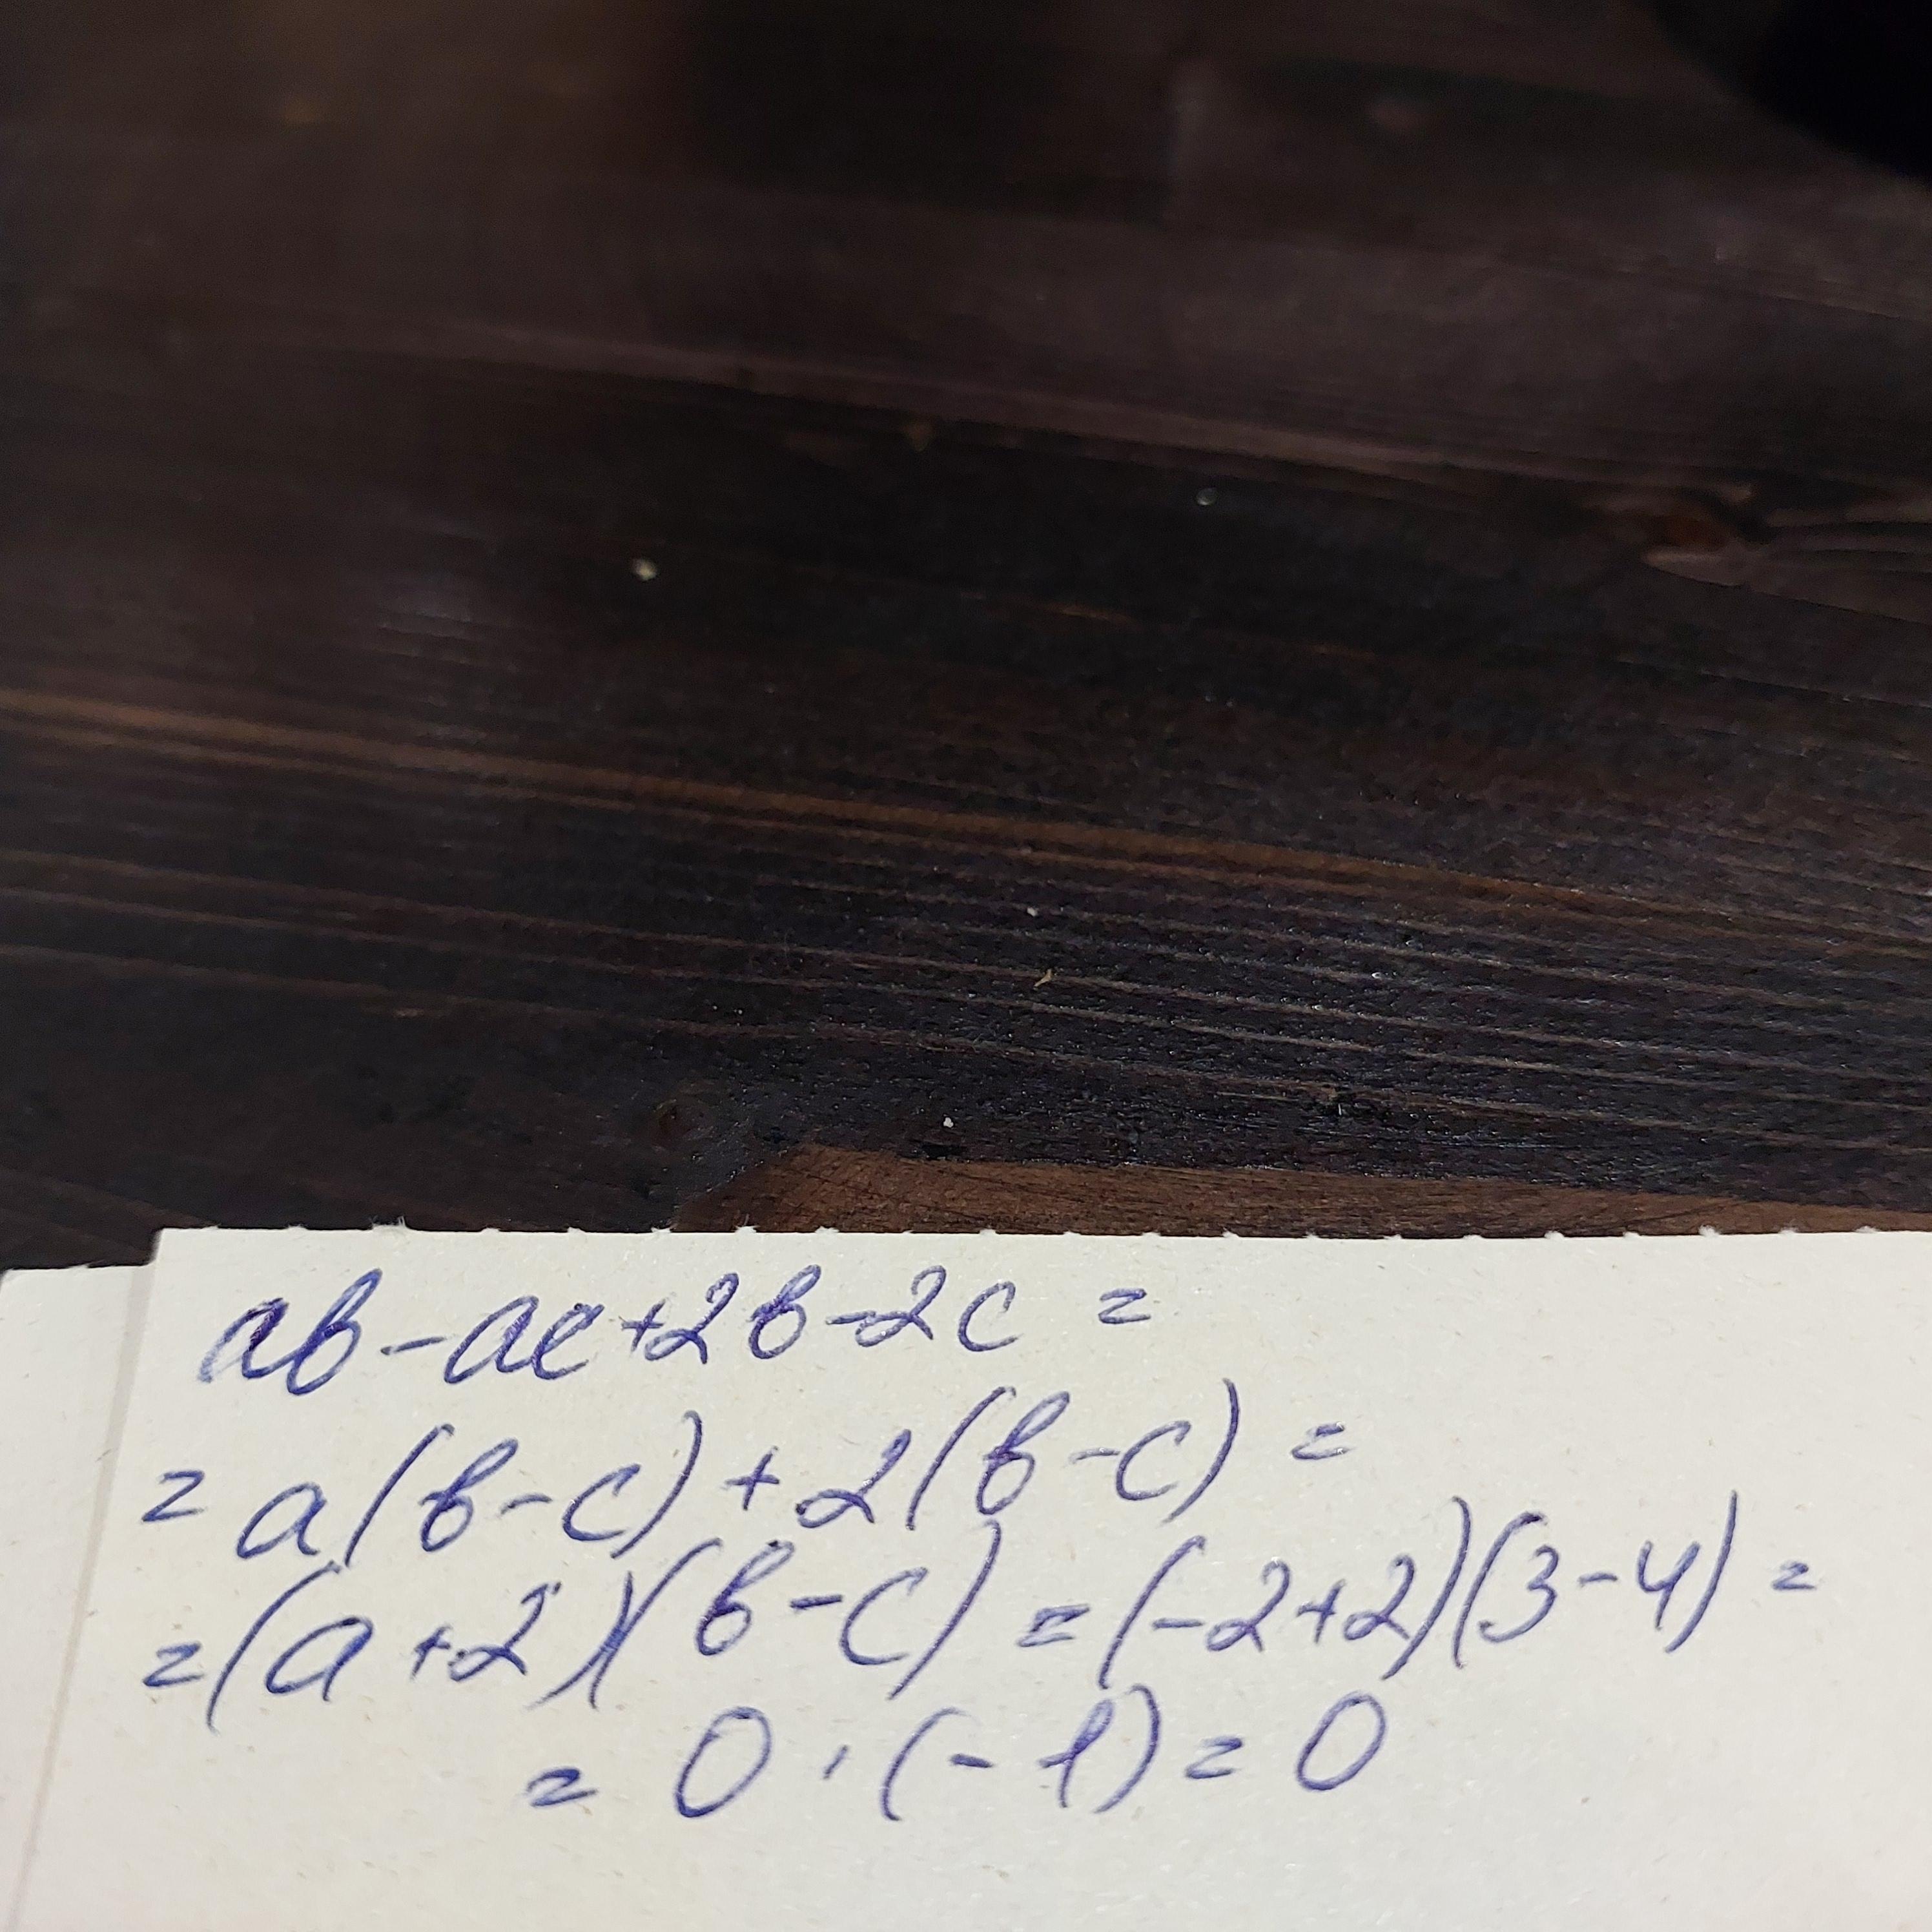 ab-ac+2b-2c =
= a(b-c) + 2(b-c) =
=(a+2)(b-c) = (-2+2)(3-4) =
= 0 · (-1) = 0